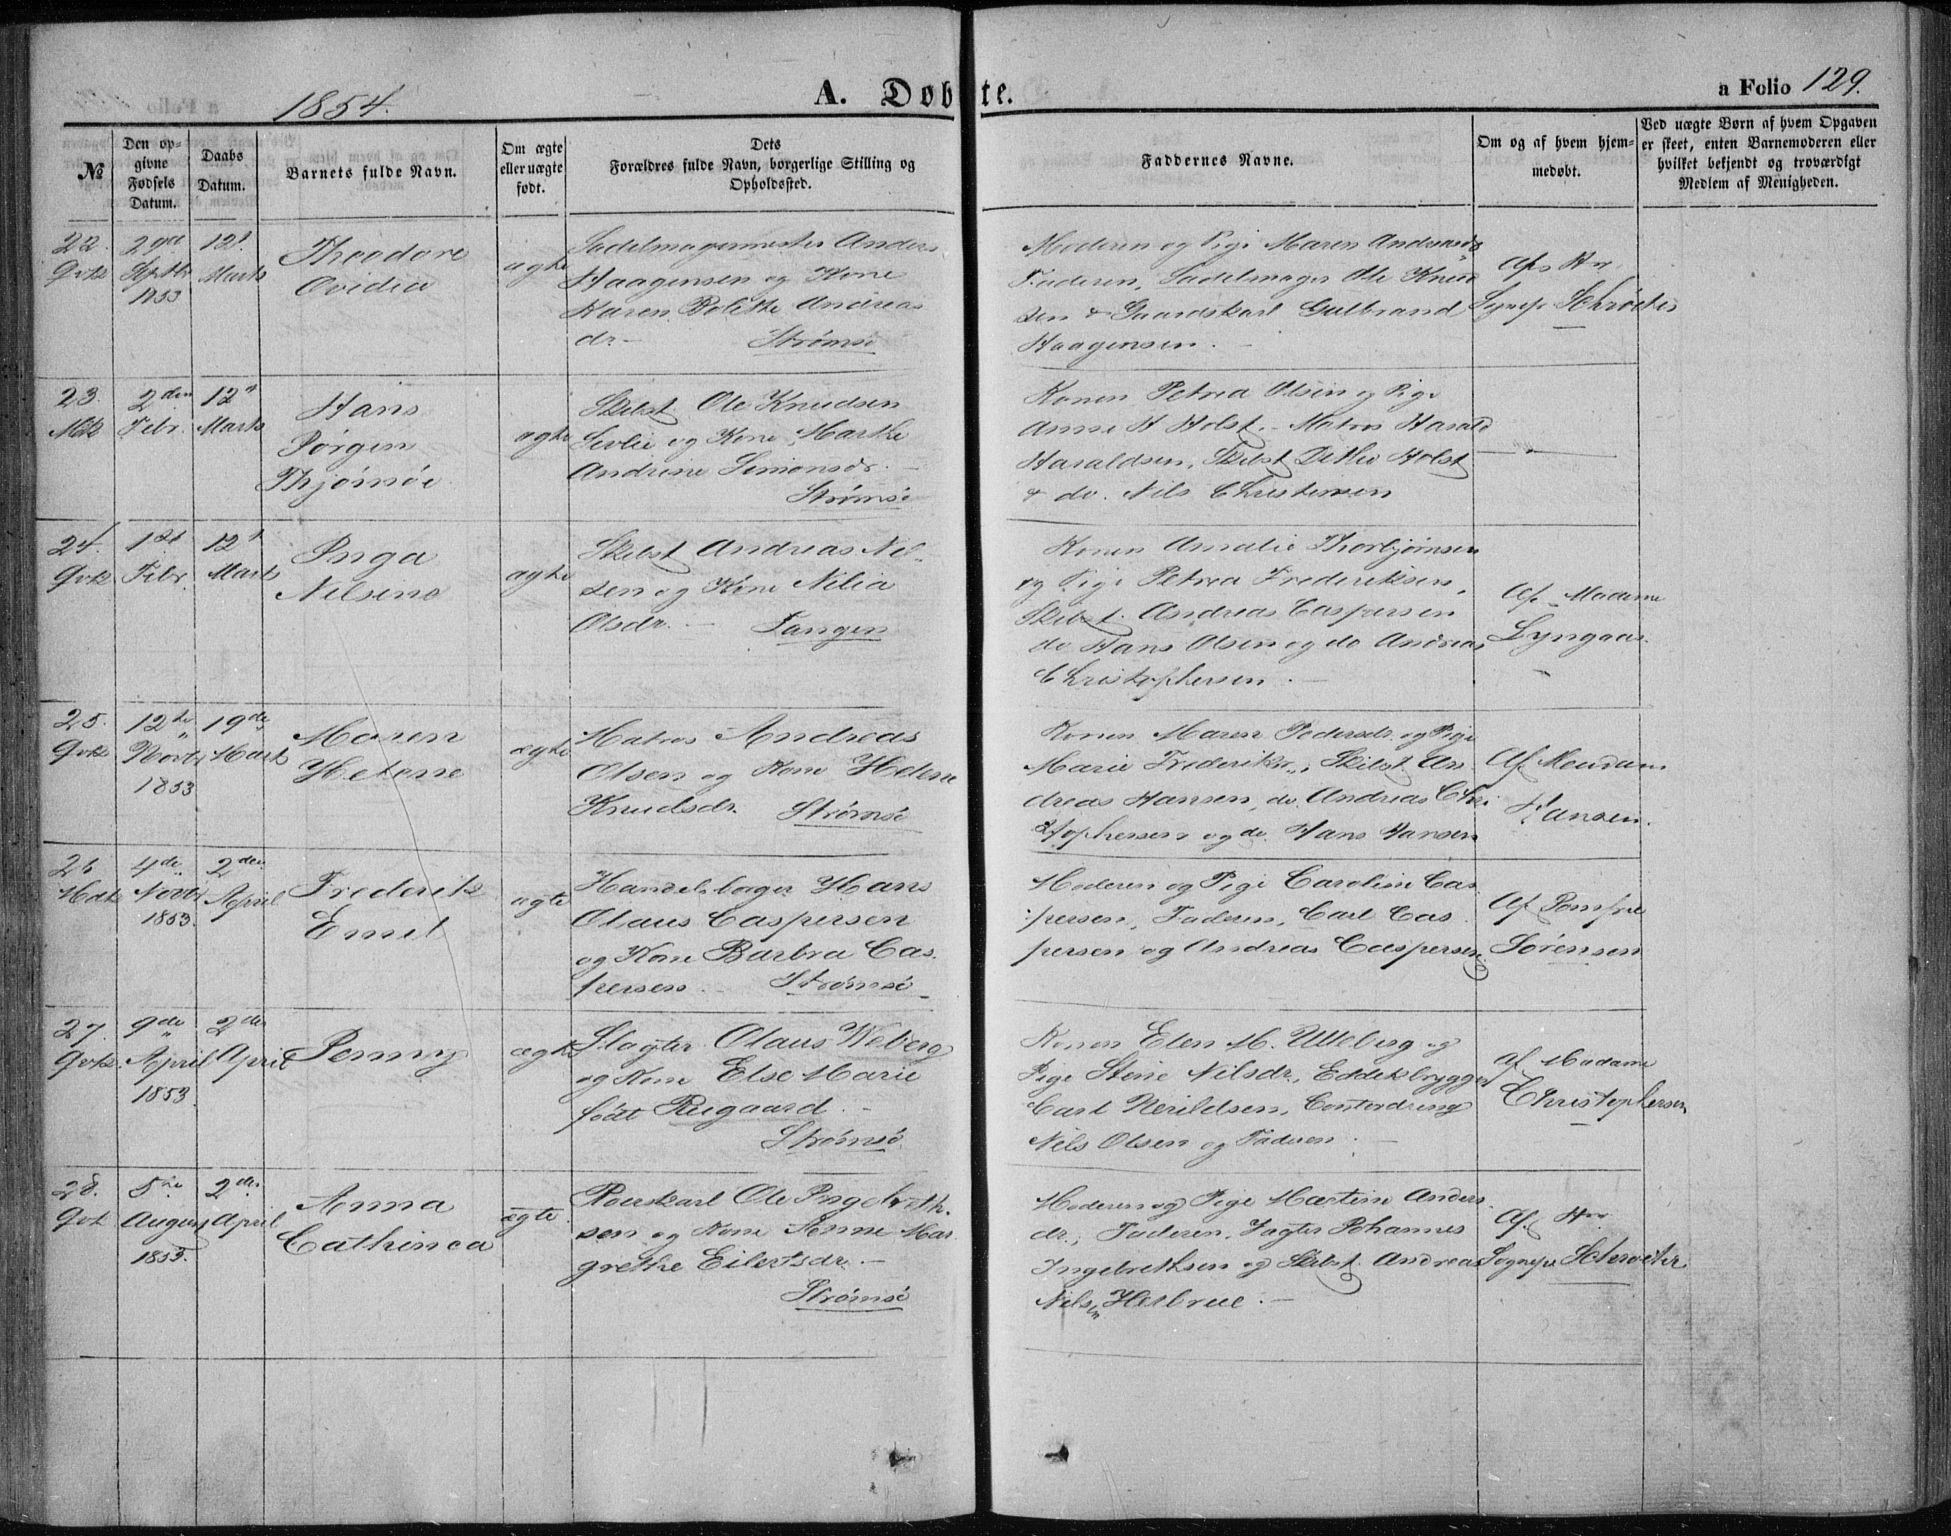 1854.
A. Døbte.
a Folio 129.
№
Den opgivne Fødsels Datum.
Daabs Datum.
Barnets fulde Navn.
Om ægte eller uægte født.
Dets Forældres fulde Navn, borgerlige Stilling og Opholdssted.
Faddernes Navne.
Om og af hvem hjemmedøbt.
Ved uægte Børn af hvem Opgaven er skeet, enten Barnemoderen eller hvilket bekjendt og troværdigt Medlem af Menigheden.
22.
1853
12t Marts
Theodore
Ovidia
ægte
Sadelmagermester Anders
Haagensen og Kone
Karen Bolette Andreas
dr. - Strømsø
Moderen og Pige Maren Andreasdr
Faderen, Sadelmager Ole Knud
sen & Gaardskarl Gulbrand
Haagensen. -
Af Hr
Sognep Schrøeter
23.
2den Febr.
12t Marts
Hans
Jørgen
Thjømøe
ægte
Skibst. Ole Knudsen
og Kone Marthe
Andrine Simonsdr. -
Strømsø
Konen Petrea Olsen og Pige
Anne H Holst. - Matros Harald
Haraldsen, Skibst Holst
& do. Nils Christensen
24.
1st Febr
12t Marts
Inga
Nilsine
ægte
Skibst Andreas Nil-
sen og Kone Nilia
Olsdr. - Tangen
Konen Amalie Thorbjørnsen
og Pige Petrea Frederiksen,
Skibst. Andreas Caspersen
do Hans Olsen og do Andreas
Christophersen. -
Af Madame
Lyngaas.
25.
12te Novbr 1853
19de Marts
Maren
Helene
ægte
Matros Andreas
Olsen og Kone Helene
Knudsdr. Strømsø
Konen Maren Pedersdr. og Pige
Marie Frederiks, Skibst An
dreas Hansen, do. Andreas Chri
stophersen og do. Hans Hansen
Af Madam
Hansen.
26
4de Novbr 1853.
2den April
Frederik
Emil
ægte
Hans
Olaus Caspersen
og Kone Barbra Cas
persen. Strømsø
Moderen og Pige Caroline Cas
persen, Faderen, Carl Cas
persen og Andreas Caspersen
Af Jomfru
Sørensen
27.
9de April 1853.
2den April
Jenny
ægte
Slagter Olaus Weberg
og Kone Else Marie
født Rugaard. -
Strømsø
Konen Elen M. Ulleberg og
Pige Stine Nilsdr., Eddikbrygger
Carl Contordreng
Nils Olsen og Faderen. -
af Madame
Christophersen
28.
5te August 1853.
2den April
Anna
Cathinca
ægte
Ole Ingebreth-
sen og Kone Anne Mar
grethe Eilertsdr. -
Strømsø
Moderen og Pige Martine Anders
dr., Faderen, Johannes
Ingebrethsen og Skibst. Andreas
Nilsen Helbrue. -
Af Hr
Sognepr Schrøeter